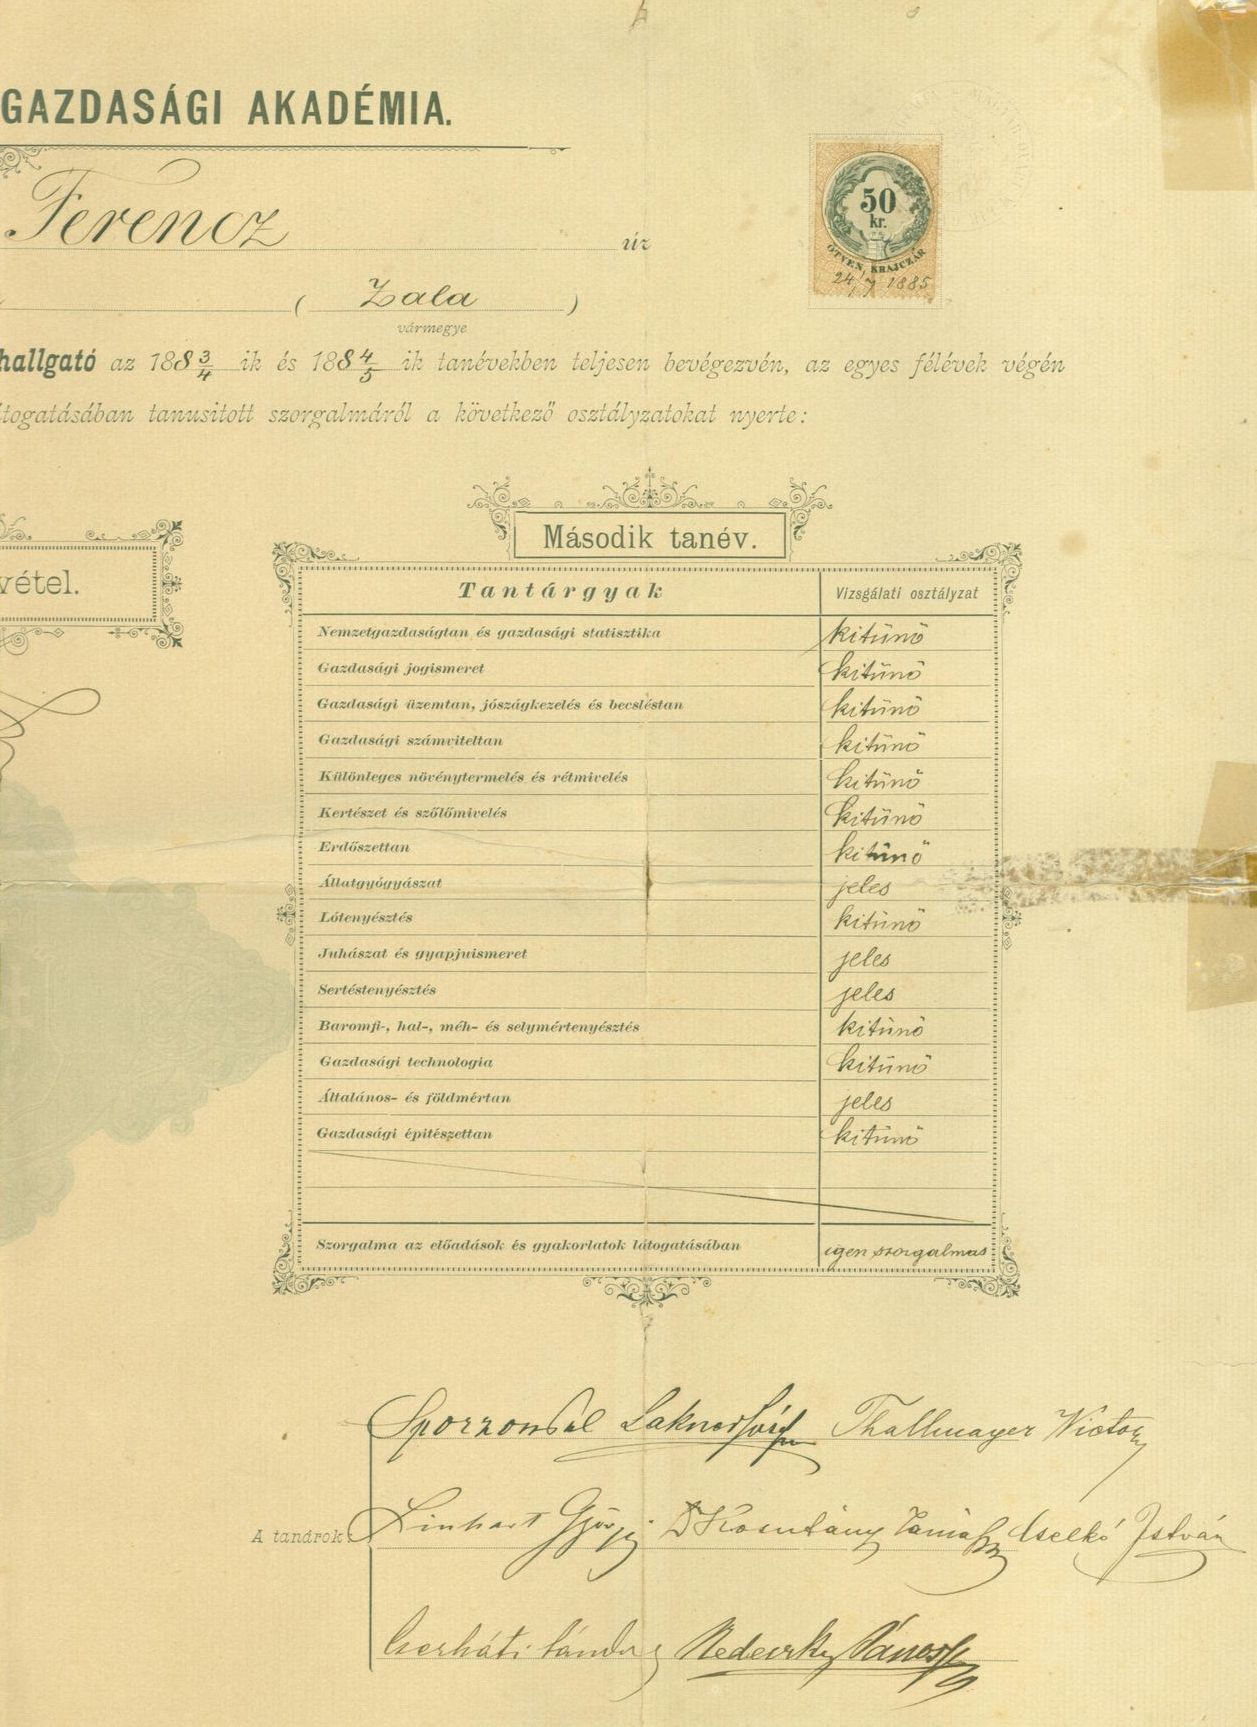 GAZDASÁGI AKADÉMIA.
Ferencz úr
50
kr.
ÖTVEN KRAJCZÁR
24/7 1885
( Zala )
vármegye
hallgató az 188 3/4 ik és 188 4/5 ik tanévekben teljesen bevégezvén, az egyes félévek végén
togatásában tanusitott szorgalmáról a következő osztályzatokat nyerte:
vétel.
Második tanév.
Tantárgyak Vizsgálati osztályzat
Nemzetgazdaságtan és gazdasági statisztika kitünő
Gazdasági jogismeret kitünő
Gazdasági üzemtan, jószágkezelés és becsléstan kitünő
Gazdasági számviteltan kitünő
Különleges növénytermelés és rétmivelés kitünő
Kertészet és szőlőmivelés kitünő
Erdőszettan kitünő
Állatgyógyászat jeles
Lótenyésztés kitünő
Juhászat és gyapjuismeret jeles
Sertéstenyésztés jeles
Baromfi-, hal-, méh- és selymértenyésztés kitünő
Gazdasági technologia kitünő
Általános- és földmértan jeles
Gazdasági épitészettan kitünő
Szorgalma az előadások és gyakorlatok látogatásában igen szorgalmas
Sporzon Pál Lakner Thallmayer Victor
A tanárok: Linhart György Dr Kosutány Tamás Cselkó István
Cserháti Sándor Nedeczky János